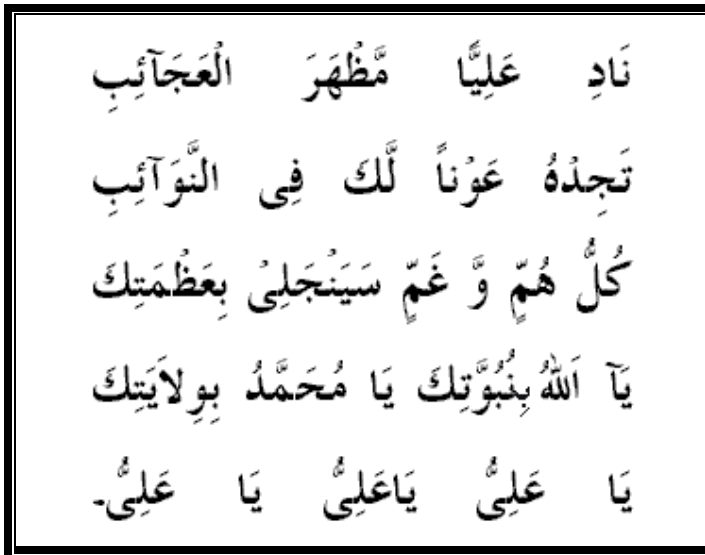 نَادِ عَلِيًّا مَّظْهَرَ الْعَجَآئِبِ
تَجِدْهُ عَوْناً لَّكَ فِی النَّوَآئِبِ
كُلُّ هُمٍّ وَّ غَمٍّ سَيَنْجَلِیْ بِعَظْمَتِكَ
يَآ اَللهُ بِنُبُوَّتِكَ يَا مُحَمَّدُ بِوِلاَيَتِكَ
يَا عَلِیُّ يَاعَلِیُّ يَا عَلِیُّ۔